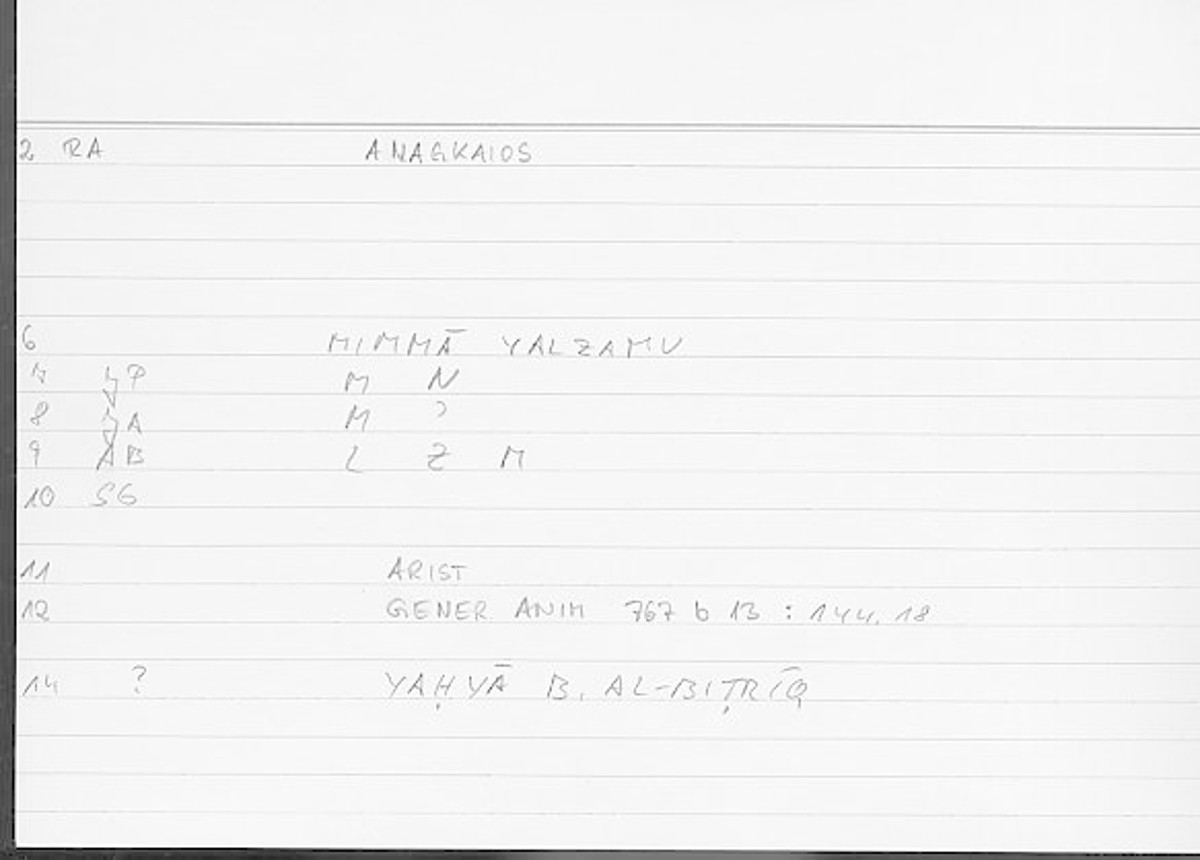 2 RA ANAGKAIOS
6 MIMMĀ YALZAMU
7 P M N
8 A M ʾ
9 AB L Z M
10 SG
11 ARIST
12 GENER. ANIM 767 b 13 : 144. 18
14 ? YAḤYĀ B. AL-BIṬRĪQ